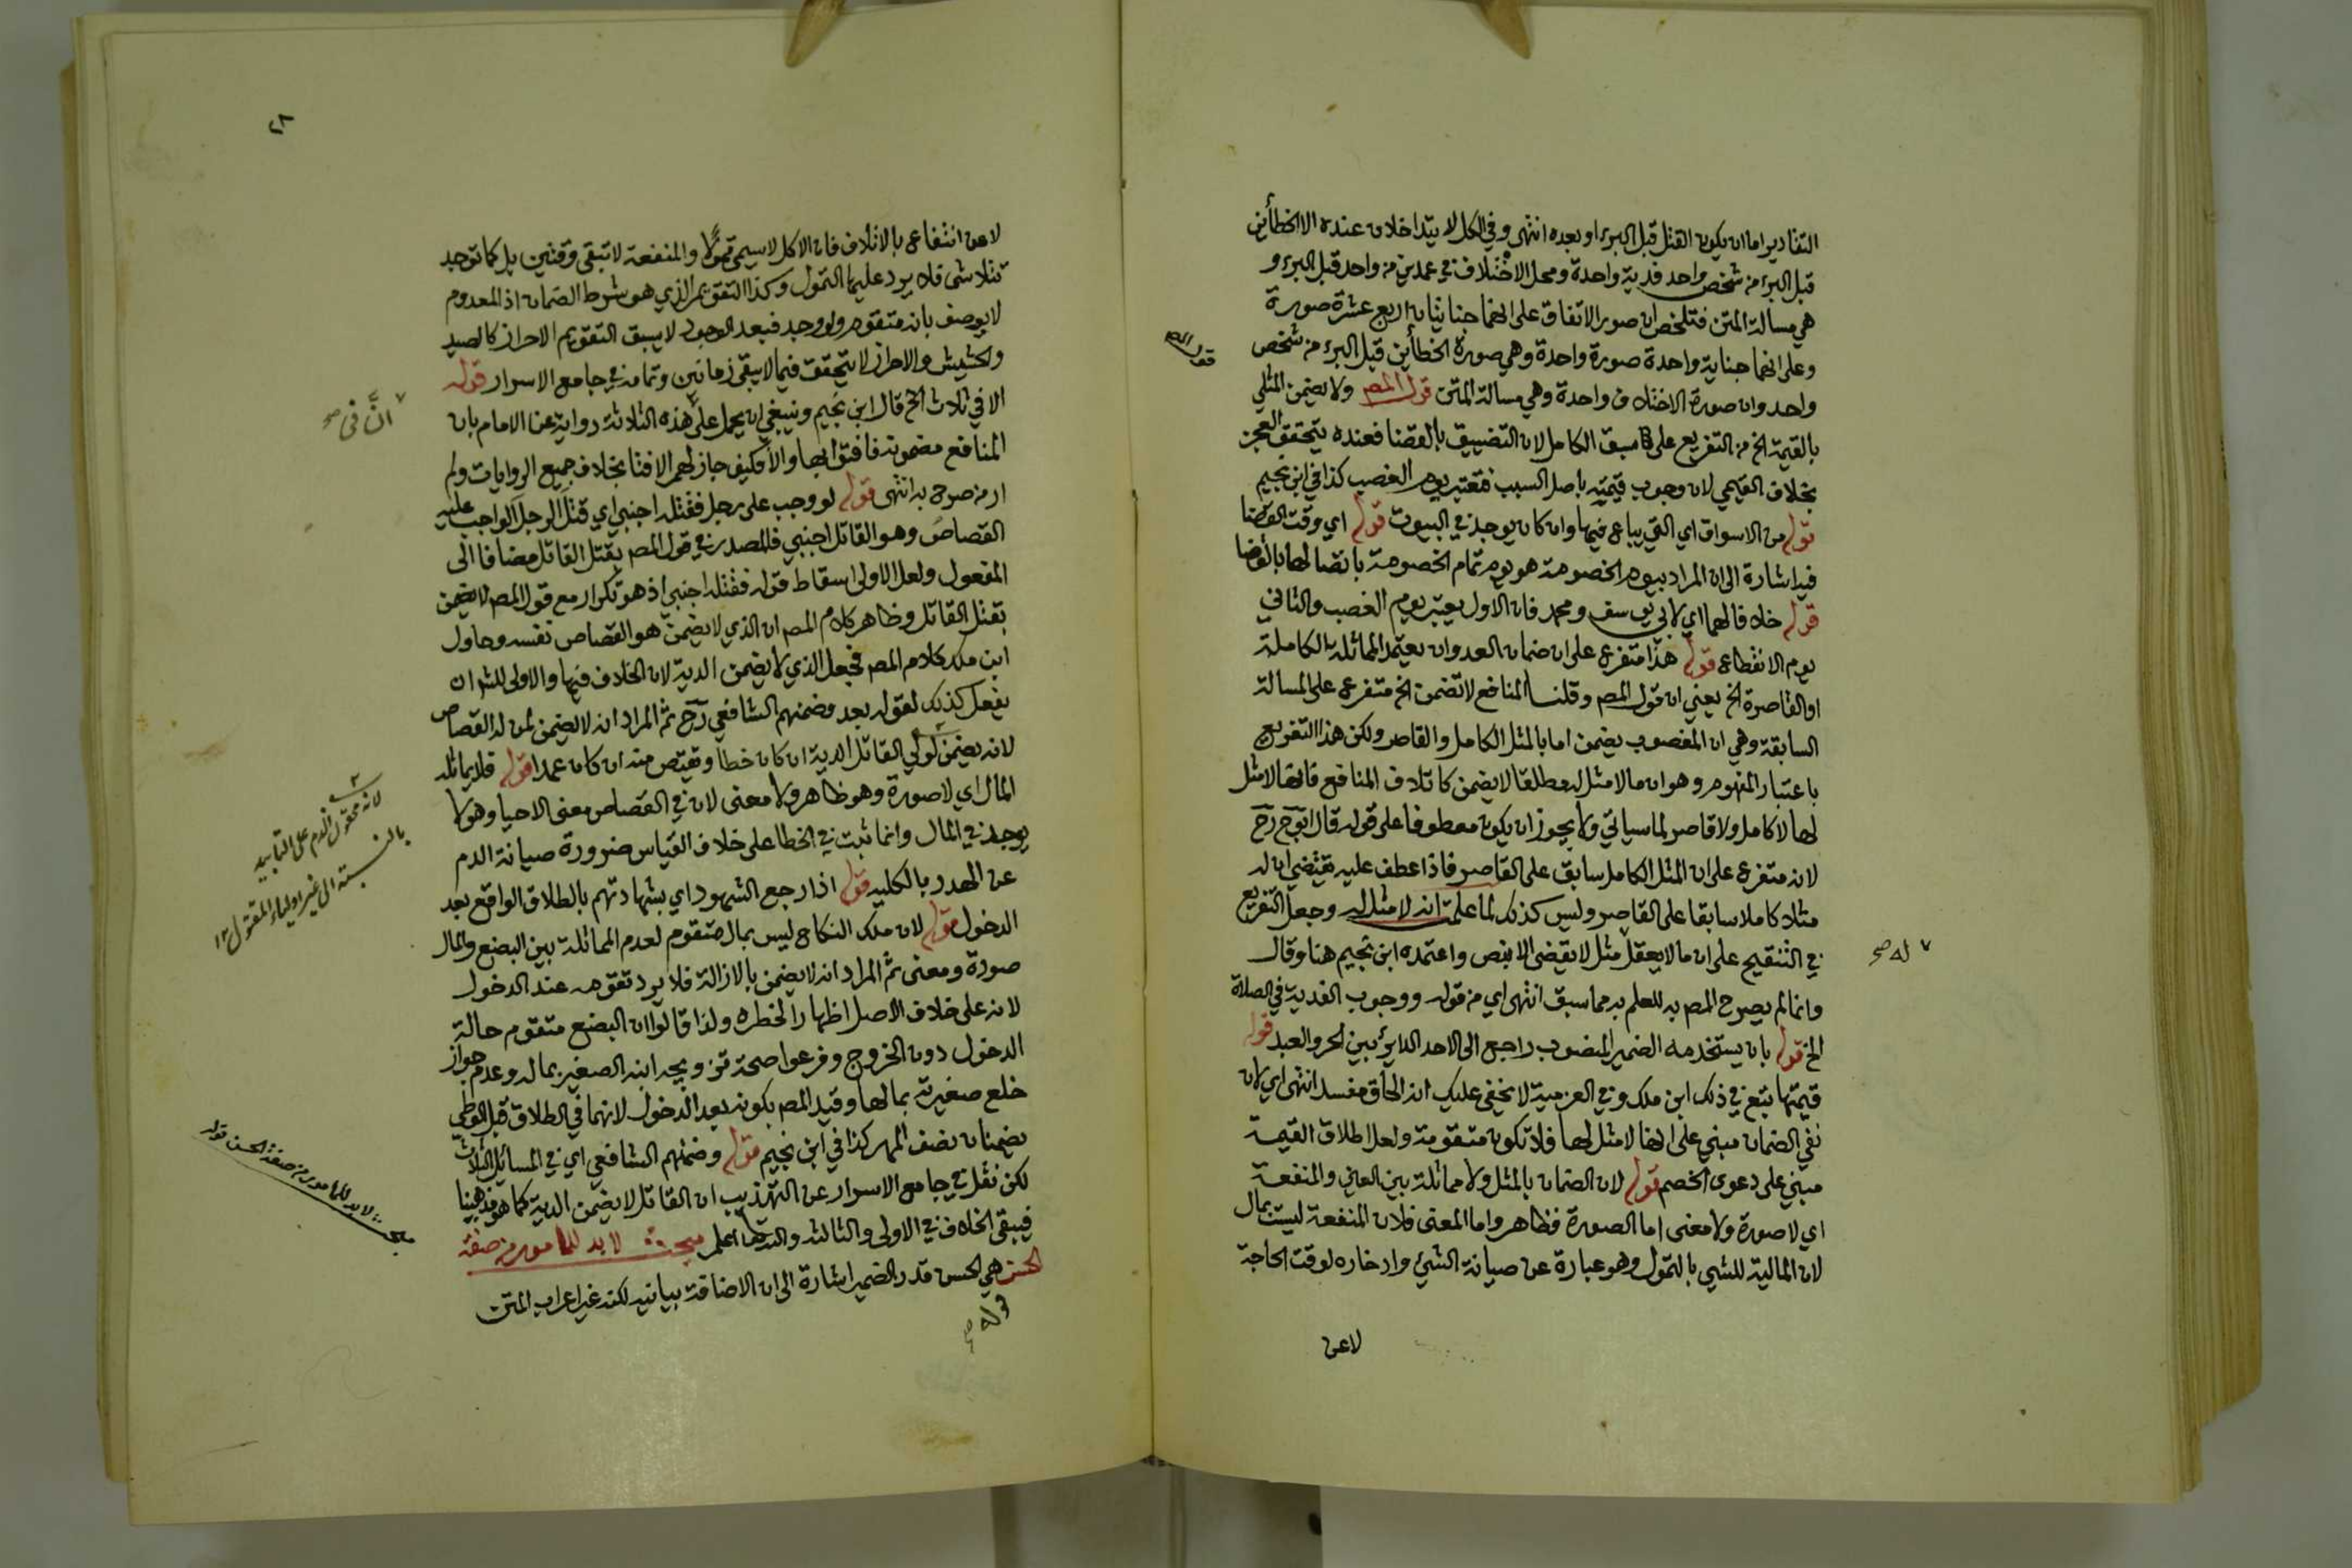 التقادير اما ان يكون القتل قبل البرء او بعده انتهى وفي الكل لا يتداخلان عنده الا الخطأين
قبل البرء من شخص واحد فدية واحدة ومحل الاختلاف في عمدين من واحد قبل البرء و
هي مسالة المتن فتلخص ان صور الاتفاق على انهما جنايتان اربع عشرة صورة
وعلى انهما جناية واحدة صورة واحدة وهي صورة الخطأين قبل البرء من شخص
واحد وان صورة الاختلاف واحدة وهي مسالة المتن قول المص ولا يضمن المثلي
بالقيمة الخ من التفريع على ما سبق الكامل لان التضييق بالقضا فعنده يتحقق العجز
بخلاف القيمي لان وجوب قيمته باصل السبب فتعتبر يوم الغصب كذا في ابن نجيم
قوله من الاسواق اي التي يباع فيها وان كان يوجد في البيوت قوله اي وقت القضا
فيه اشارة الى ان المراد بيوم الخصومة هو يوم تمام الخصومة باتصالها بالقضا
قوله خلافا لهما اي لابي يوسف ومحمد فان الاول يعتبر يوم الغصب والثاني
يوم الانقطاع قوله هذا متفرع على ان ضمان العدوان يعتمد المماثلة الكاملة
او القاصرة الخ يعني ان قول المص وقلنا المنافع لا تضمن الخ متفرع على المسالة
السابقة وهي ان المغصوب يضمن اما بالمثل الكامل والقاصر ولكن هذا التفريع
باعتبار المفهوم وهو ان ما لا مثل له مطلقا لا يضمن كاتلاف المنافع فانها لا مثل
لها لا كامل ولا قاصر لما سياتي ولا يجوز ان يكون معطوفا على قوله قال ابو ح رح
لانه متفرع على ان المثل الكامل سابق على القاصر فاذا عطف عليه يقتضي ان له
مثلا كاملا سابقا على القاصر وليس كذلك لما علمت انه لا مثل له وجعل التفريع
في التنقيح على ان ما لا يعقل مثل لا يقضى الا بنص واعتمده ابن نجيم هنا وقال
له صح
وانما لم يصرح المص به للعلم به مما سبق انتهى اي من قوله ووجوب الفدية في الصلاة
الخ قوله بان يستخدمه الضمير المنصوب راجع الى الاحد الدائر بين الحر والعبد قوله
قيمتها يتبع في ذلك ابن ملك وفي العزمية لا يخفى عليك انه الحاق مفسد انتهى اي لان
نفي الضمان مبني على انها لا مثل لها فلا تكون متقومة ولعل اطلاق القيمة
مبني على دعوى الخصم قوله لان الضمان بالمثل ولا مماثلة بين العين والمنفعة
اي لا صورة ولا معنى اما الصورة فظاهر واما المعنى فلان المنفعة ليست بمال
لان المالية للشيء بالتمول وهو عبارة عن صيانة الشيء وادخاره لوقت الحاجة
لا عن
لا عن انتفاع بالاتلاف فان الاكل لا يسمى تمولا والمنفعة لا تبقى وقتين بل كما توجد
تتلاشى فلا يرد عليها التمول وكذا التقويم الذي هو شرط الضمان اذ المعدوم
لا يوصف بانه متقوم ولو وجد فبعد الوجود لا يسبق التقويم الاحراز كالصيد
والحشيش والاحراز لا يتحقق فيما لا يبقى زمانين وتمامه في جامع الاسرار قوله
الا في ثلاث الخ قال ابن نجيم وينبغي ان يحمل على هذه الثلاثة رواية عن الامام بان
المنافع مضمونة فافتوا بها والا فكيف جاز لهم الافتا بخلاف جميع الروايات ولم
ار من صرح به انتهى قوله لو وجب على رجل فقتله اجنبي اي قتل الرجل الواجب عليه
القصاص وهو القاتل اجنبي فالمصدر في قول المص بقتل القاتل مضافا الى
المفعول ولعل الاولى اسقاط قوله فقتله اجنبي اذ هو تكرار مع قول المص لا يضمن
بقتل القاتل وظاهر كلام المص ان الذي لا يضمن هو القصاص نفسه وحاول
ابن ملك كلام المص فجعل الذي لا يضمن الدية لان الخلاف فيها والاولى للش ان
يفعل كذلك لقوله بعد وضمنهم الشافعي رح ثم المراد انه لا يضمن لمن له القصاص
لانه يضمن لولي القاتل الدية ان كان خطأ ويقتص منه ان كان عمدا قوله فلا يماثله
المال اي لا صورة وهو ظاهر ولا معنى لان في القصاص معنى الاحيا وهو لا
يوجد في المال وانما ثبت في الخطا على خلاف القياس ضرورة صيانة الدم
عن الهدر بالكلية قوله اذا رجع الشهود اي بشهادتهم بالطلاق الواقع بعد
الدخول قوله لان ملك النكاح ليس بمال متقوم لعدم المماثلة بين البضع والمال
صورة ومعنى ثم المراد انه لا يضمن بالازالة فلا يرد تقومه عند الدخول
لانه على خلاف الاصل اظهارا لخطره ولذا قالوا ان البضع متقوم حالة
الدخول دون الخروج وفرعوا صحة تزويجه ابنه الصغير بماله وعدم جواز
خلع صغيرته بمالها وقيد المص بكونه بعد الدخول لانهما في الطلاق قبل الوطي
يضمنان نصف المهر كذا في ابن نجيم قوله وضمنهم الشافعي اي في المسائل الثلاث
لكن نقل في جامع الاسرار عن التهذيب ان القاتل لا يضمن الدية كما هو مذهبنا
فيبقى الخلاف في الاولى والثالثة والله اعلم مبحث لا بد للمامور من صفة
الحسن هي الحسن قدر الضمير اشارة الى ان الاضافة بيانية لكنه غير اعراب المتن
قوله
ان في صح
لانه محقون الدم على التابيد
بالنسبة الى غير اولياء المقتول ١٢
مبحث لا بد للمامور من صفة الحسن